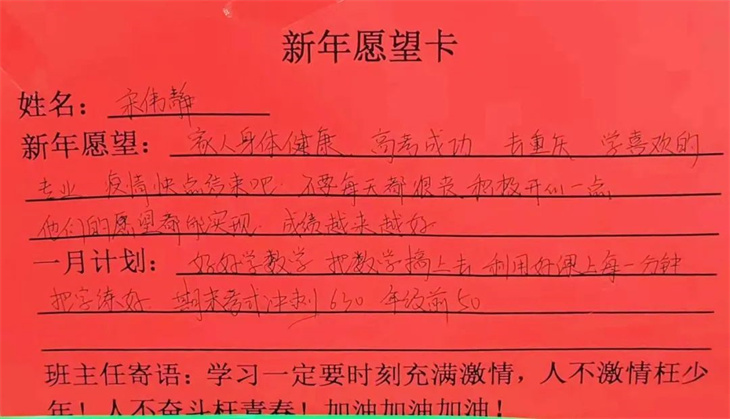 新年愿望卡
姓名: 宋伟静
新年愿望: 家人身体健康 高考成功 去重庆 学喜欢的
专业 疫情快点结束吧 不要每天都很丧 积极开心一点
他们的愿望都能实现 成绩越来越好
一月计划: 好好学数学 把数学搞上去 利用好课上每一分钟
把字练好 期末考试冲刺630 年级前50
班主任寄语: 学习一定要时刻充满激情，人不激情枉少
年！人不奋斗枉青春！加油加油加油！